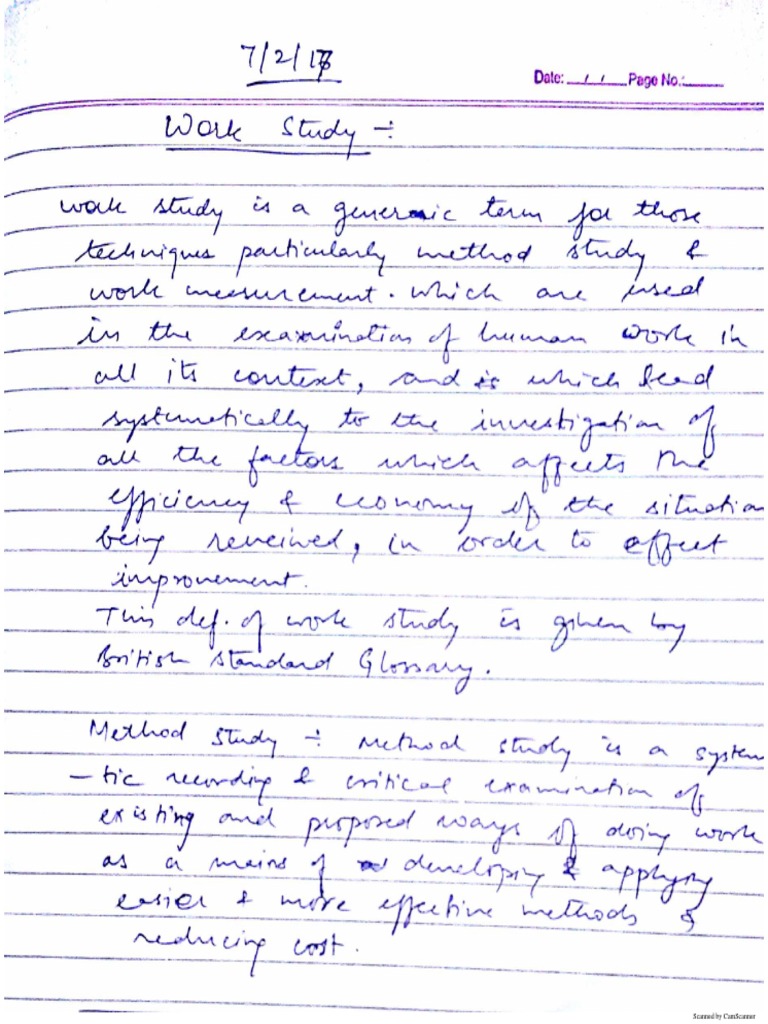 7/2/17
Date: / / Page No.:
Work Study :-
work study is a generic term for those
techniques particularly method study &
work measurement. which are used
in the examination of human work in
all its context, and which lead
systematically to the investigation of
all the factors which affects the
efficiency & economy of the situation
being reveived, in order to effect
improvement.
This def. of work study is given by
British Standard Glossary.
Method Study :- Method study is a system
-tic recording & critical examination of
existing and proposed ways of doing work
as a mains of developing & applying
easier & more effective methods &
reducing cost.
Scanned by CamScanner